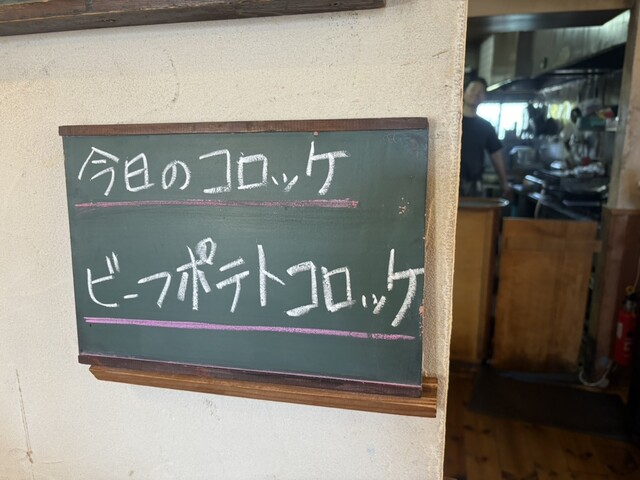 今日のコロッケ
ビーフポテトコロッケ